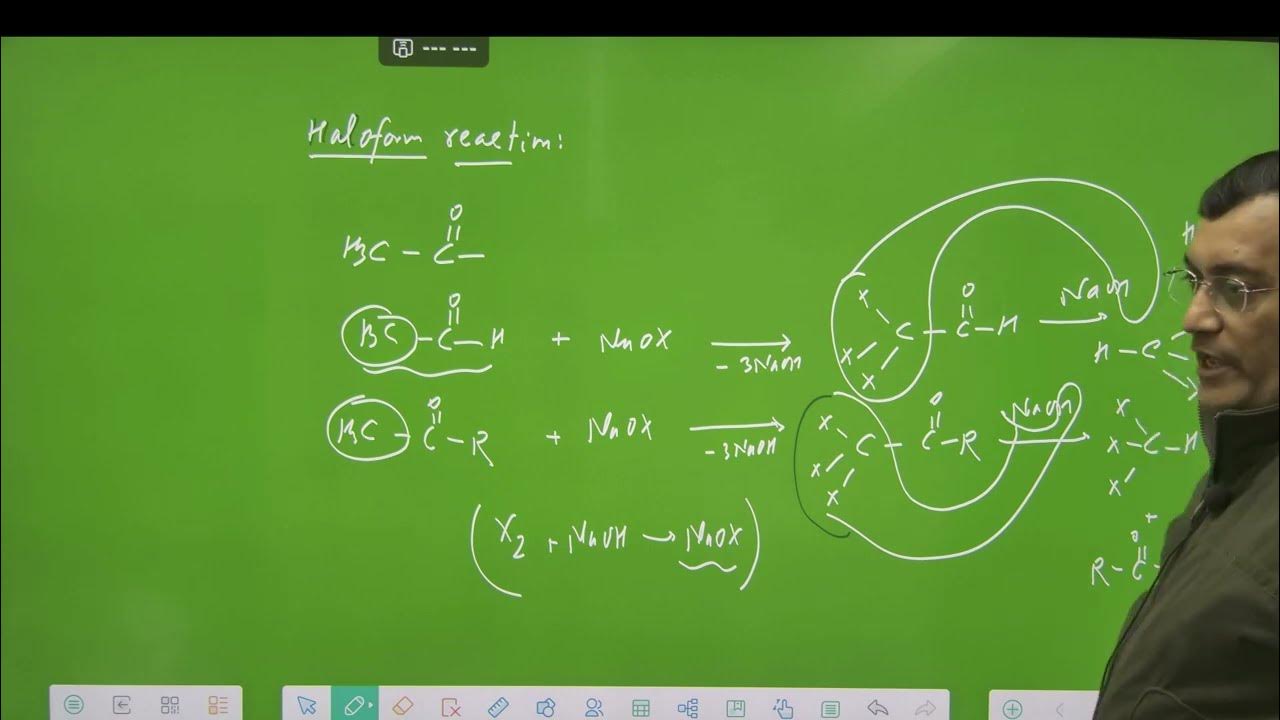 Haloform reaction:
O
H3C - C -
O
H3C - C - H + NaOX → - 3NaOH
X X X C - C - H
O
NaOH →
H - C -
O
H3C - C - R + NaOX → - 3NaOH
X X X C - C - R
O
NaOH →
X X X C - H
+
O
R - C -
(X2 + NaOH → NaOX)